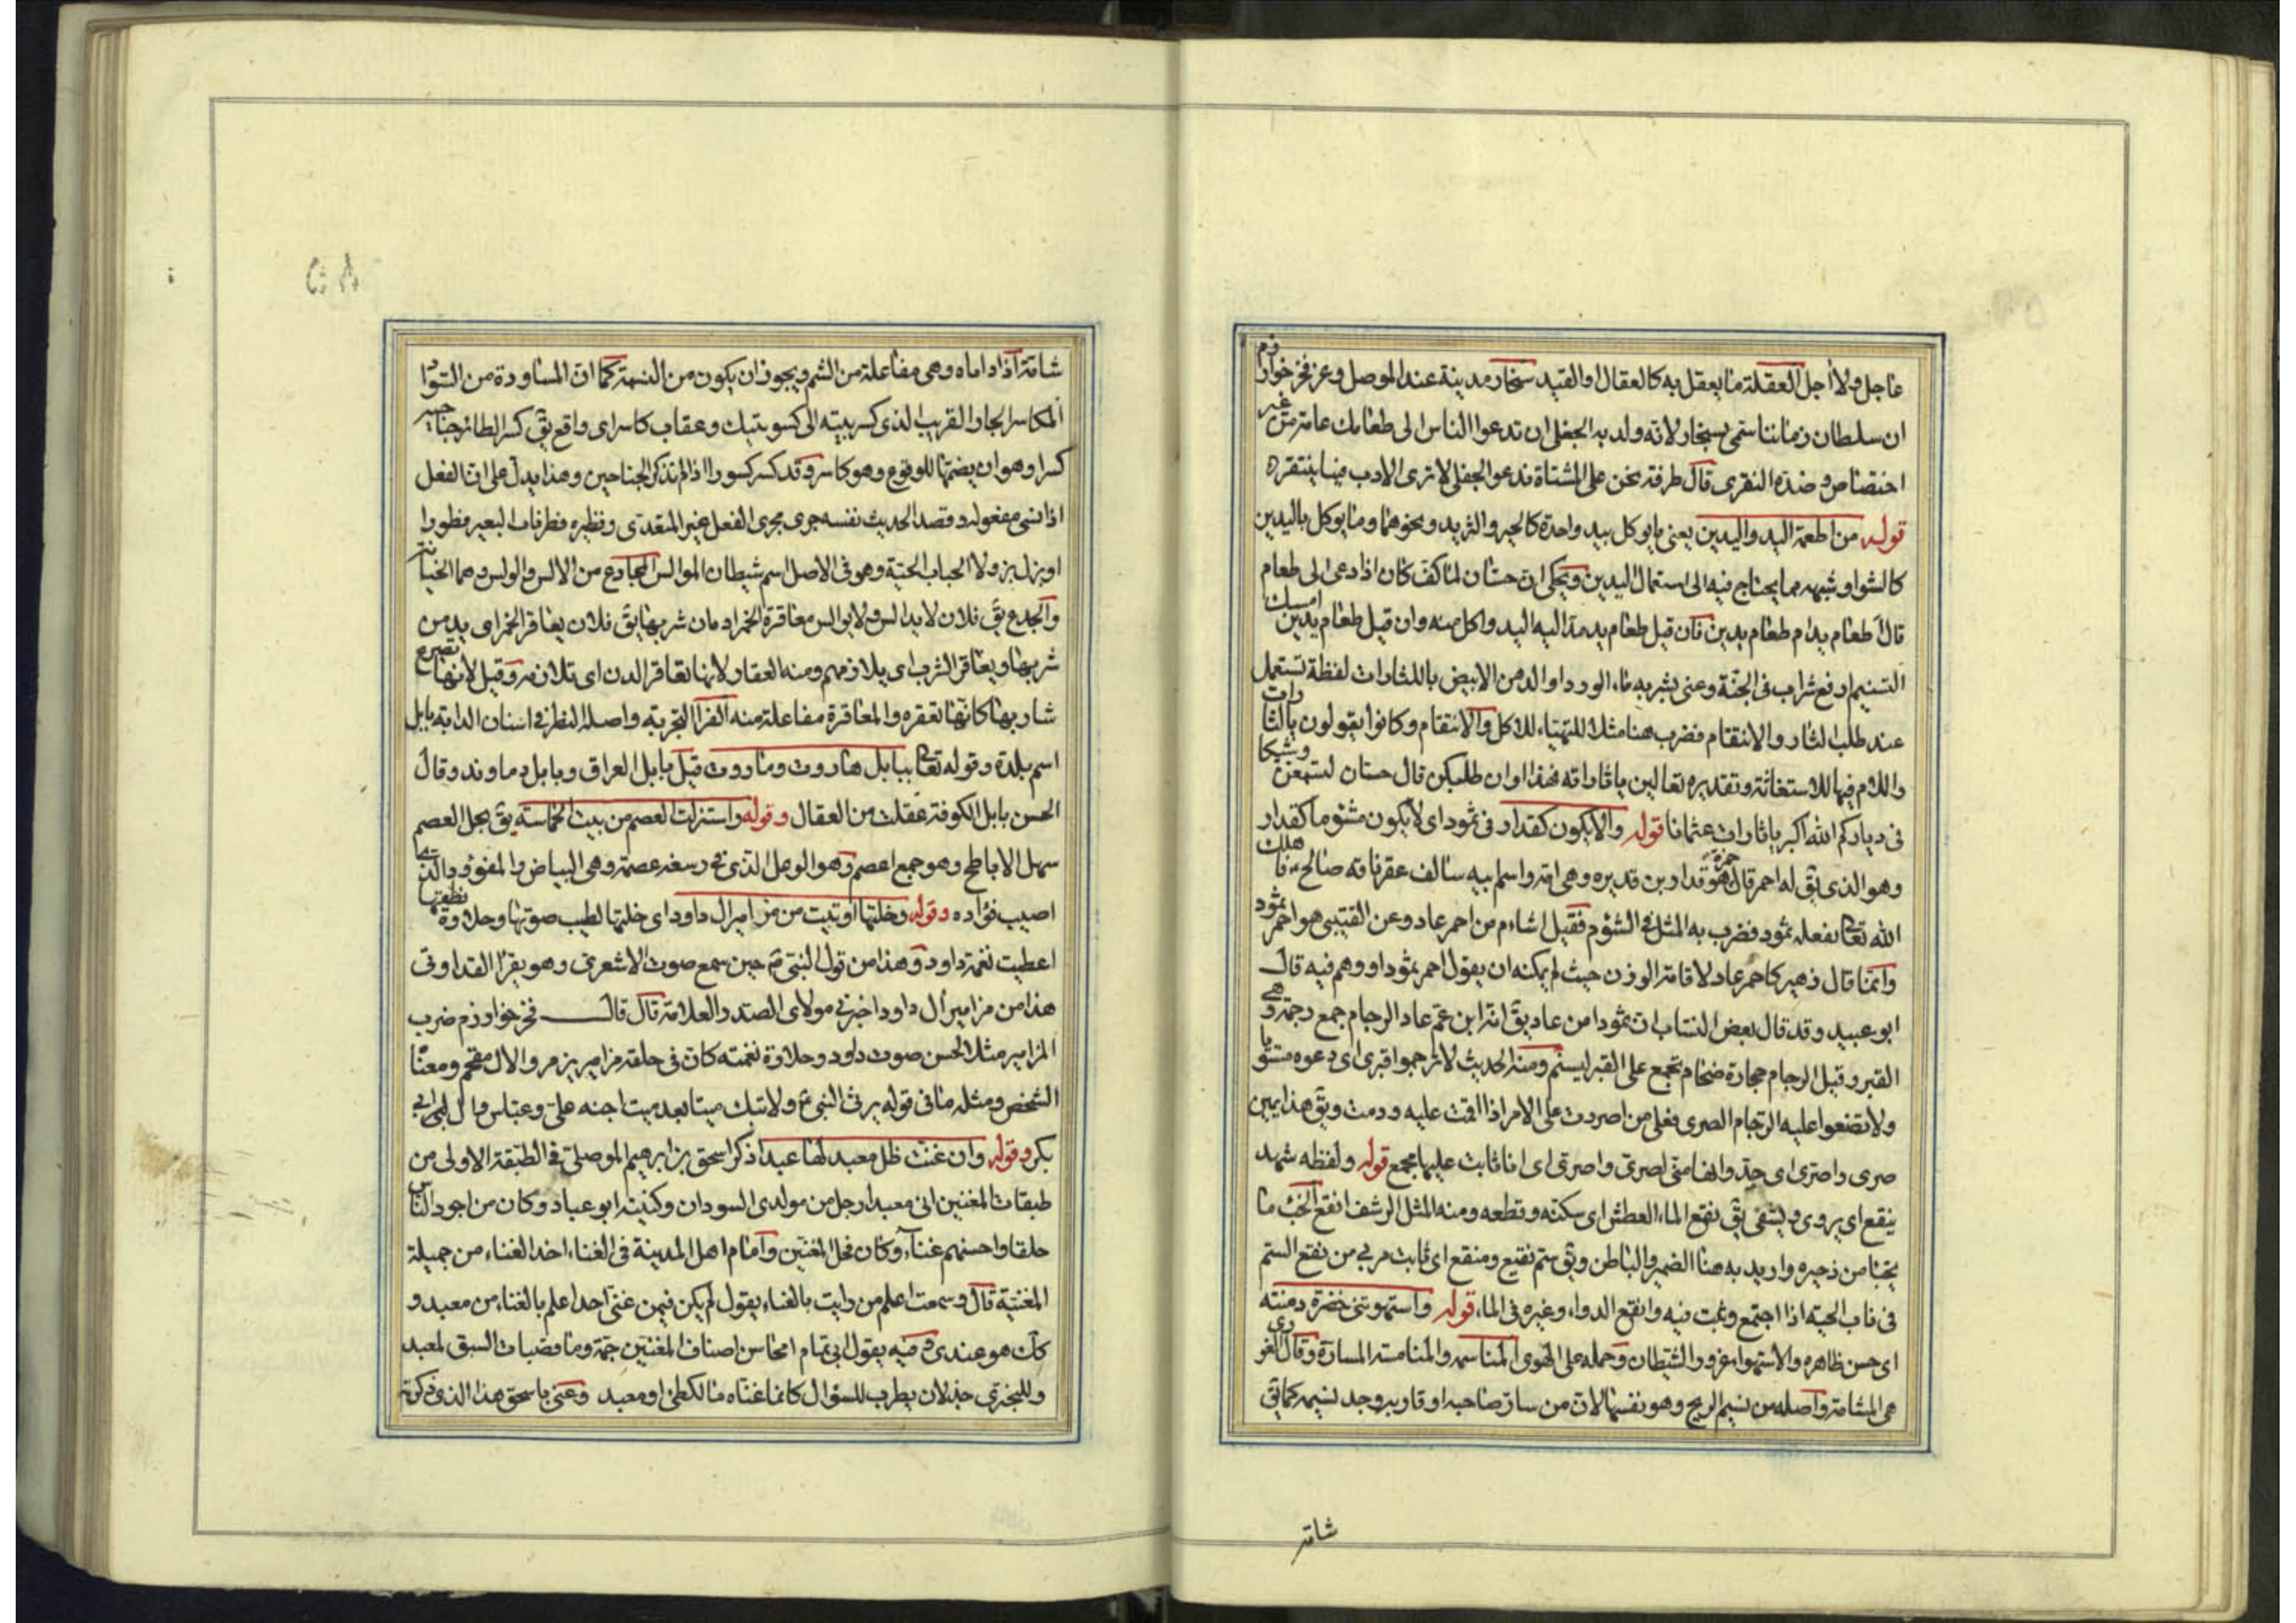 عاجل ولا اجل العقلة ما يعقل به كالعقال او القيد سنجار مدينة عند الموصل وعن فخر خوارزم
ان سلطان زماننا سمى بسنجار لانه ولد به الجفلى ان تدعوا الناس الى طعامك عامة من غير
اختصاص وضده النقرى قال طرفة نحن على المشتاة ندعو الجفلى لا ترى الادب فينا ينتقره
قوله من اطعمة اليد واليدين يعنى ما يوكل بيد واحدة كالحير والثريد ونحوهما وما يوكل باليدين
كالشوا وشبهه مما يحتاج فيه الى استعمال اليدين ويحكى ان حسان لما كف كان اذا دعى الى طعام
قال اطعام يد ام طعام يدين فان قيل طعام يد مد اليه اليد واكل منه وان قيل طعام يدين امسك
التسنيم ارفع شراب فى الجنة وعنى بشربه ماء الورد او الدهن الابيض يا للثارات لفظة تستعمل
عند طلب الثار والانتقام فضرب هنا مثلا للتهياء للاكل والانتقام وكانوا يقولون يا لثارات
واللام فيها للاستغاثة وتقديره تعالين يا ثاراته فهذا اوان طلبكن قال حسان لتسمعن وشيكا
فى دياركم الله اكبر يا ثارات عثمانا قوله والا يكون كقدار فى ثمود اى لا يكون مشؤما كقدار
وهو الذى يق له احمر قال حمزة هو قدار بن قديره وهى امه واسم ابيه سالف عقر ناقه صالح فاهلك
الله تعالى بفعله ثمود فضرب به المثل فى الشؤم فقيل اشاءم من احمر عاد وعن القتيبى هو احمر ثمود
وانما قال زهير كاحمر عاد لاقامة الوزن حيث لم يمكنه ان يقول احمر ثمود او وهم فيه قال
ابو عبيد وقد قال بعض النساب ان ثمودا من عاد يق انه ابن عم عاد الرجام جمع رجمة وهى
القبر وقيل الرجام حجارة ضخام تجمع على القبر ليسنم ومنه الحديث لا ترجموا قبرى اى دعوه مستويا
ولا تضعوا عليه الرجام الصرى فعلى من اصررت على الامر اذا اقمت عليه ودمت ويق هذا يمين
صرى واصرى اى جد وانها منى لصرى واصرى اى انا ثابت عليها مجمع قوله ولفظه شهد
ينقع اى يروى ويشفى يق نقع الماء العطش اى سكنه وقطعه ومنه المثل الرشف انقع الخبء ما
يخبا من ذخيره واريد به هنا الضمير والباطن ويق سم نقيع ومنقع اى ثابت مربى من نقع السم
فى ناب الحية اذا اجتمع وثبت فيه وانقع الدواء وغيره فى الماء قوله واستهوتنى خضرة دمنته
اى حسن ظاهره والاستهواء غرور الشيطان وحمله على الهوى المنامسه والمنامسة المسارة وقال الغورى
هى المشامة واصله من نسيم الريح وهو نفسها لان من سار صاحبه او قاربه وجد نسيمه كما يق
شامة
شامة اذا داماه وهى مفاعلة من الشم ويجوز ان يكون من النسمة كما ان المساودة من السواد
المكاسر الجار القريب الذى كسر بيته الى كسر بيتك وعقاب كاسر اى واقع يق كسر الطائر جناحيه
كسرا وهو ان يضمها للوقوع وهو كاسر وقد كسر كسورا اذا لم تذكر الجناحين وهذا يدل على ان الفعل
اذا نسى مفعوله وقصد الحديث نفسه جرى مجرى الفعل غير المتعدى ونظيره فطر ناب البعير فطورا
او بزل بزولا الحباب الحية وهو فى الاصل اسم شيطان الموالس المخادع من الالس والولس وهما الخيانة
والخدع يق فلان لا يدالس ولا يوالس معاقرة الخمر ادمان شربها يق فلان يعاقر الخمر اى يدمن
شربها ويعاقر الشرب اى يلازمهم ومنه العقار لانها تعاقر الدن اى تلازمه وقيل لانها تصرع
شاربها كانها تعقره والمعاقرة مفاعلة منه الفرا التجربة واصله النظر فى اسنان الدابة بابل
اسم بلدة وقوله تعالى ببابل هاروت وماروت قيل بابل العراق وبابل دماوند وقال
الحسن بابل الكوفة عقلت من العقال وقوله واستنزلت العصم من يق يحل العصم
سهل الاباطح وهو جمع اعصم وهو الوعل الذى فى رسغه عصمة وهى البياض والمفؤود الذى
اصيب فؤاده وقوله وخلتها اوتيت من مزامير ال داود اى خلتها لطيب صوتها وحلاوة نطقها
اعطيت نغمة داود وهذا من قول النبى ع م حين سمع صوت الاشعرى وهو يقرا لقد اوتى
هذا من مزامير ال داود اخبرنى مولاى الصدر العلامة قال قال فخر خوارزم ضرب
المزامير مثلا لحسن صوت داود وحلاوة نغمته كان فى حلقه مزامير يزمر والال مقحم ومعناه
الشخص ومثله ما فى قوله يرثى النبى ع ولا تبك ميتا بعد ميت اجنه على وعباس وال ابى
بكر وقوله وان غنت ظل معبد لها عبدا ذكر اسحق بن ابرهيم الموصلى فى الطبقة الاولى من
طبقات المغنين ان معبدا رجل من مولدى السودان وكنيته ابو عباد وكان من اجود الناس
حلقا واحسنهم غناء وكان فحل المغنين وامام اهل المدينة فى الغناء اخذ الغناء من جميلة
المغنية قال وسمعت اعلم من رايت بالغناء يقول لم يكن فيمن غنى احد اعلم بالغناء من معبد و
كان هو عندى وفيه يقول ابى تمام محاسن اصناف المغنين جمة وما قصبات السبق لمعبد
وللبحترى جذلان يطرب للسؤال كانما غناه مالك طئ او معبد وعنى باسحق هذا الذى ذكرته